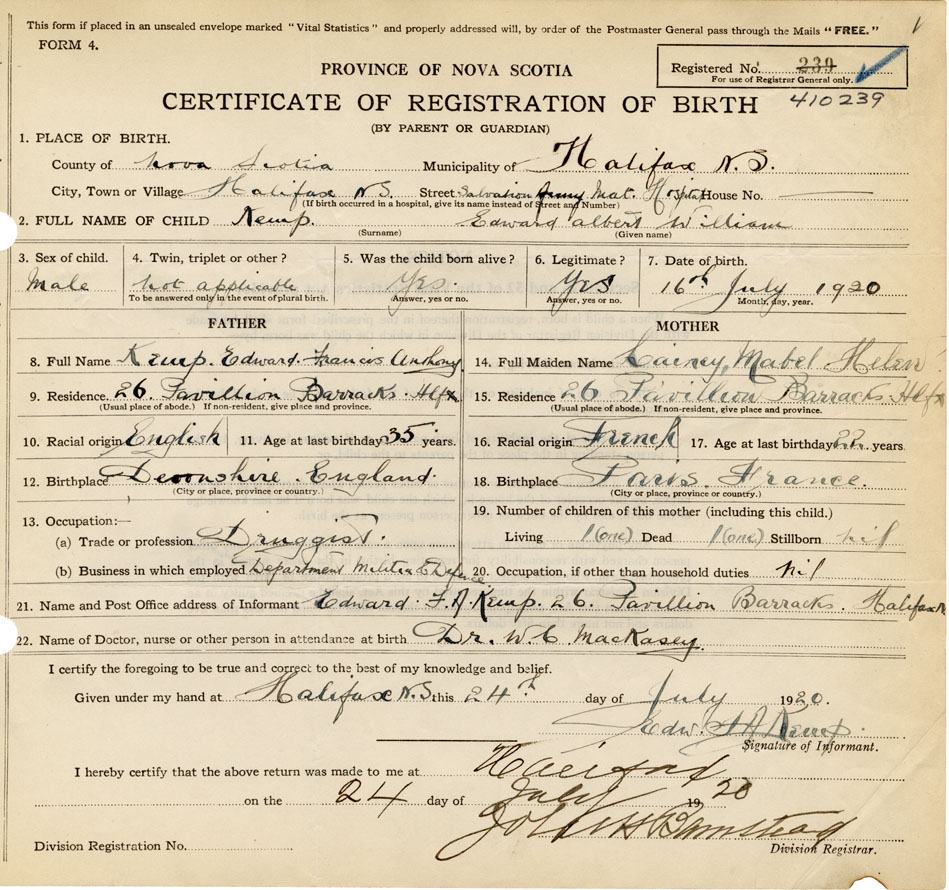 This form if placed in an unsealed envelope marked "Vital Statistics" and properly addressed will, by order of the Postmaster General pass through the Mails "FREE."
FORM 4.
PROVINCE OF NOVA SCOTIA
Registered No. 239
For use of Registrar General only.
CERTIFICATE OF REGISTRATION OF BIRTH
410239
(BY PARENT OR GUARDIAN)
1. PLACE OF BIRTH.
County of Nova Scotia Municipality of Halifax N.S.
City, Town or Village Halifax N.S. Street Salvation Army Mat. Hospital House No.
(If birth occurred in a hospital, give its name instead of Street and Number)
2. FULL NAME OF CHILD Kemp. Edward albert William
(Surname) (Given name)
3. Sex of child. 4. Twin, triplet or other? 5. Was the child born alive? 6. Legitimate? 7. Date of birth.
Male not applicable Yes. Yes 16th July 1920
To be answered only in the event of plural birth. Answer, yes or no. Answer, yes or no. Month, day, year.
FATHER MOTHER
8. Full Name Kemp. Edward. Francis Anthony 14. Full Maiden Name Lainey, Mabel Helen
9. Residence. 26. Pavillion Barracks. Hlfx 15. Residence 26 Pavillion Barracks. Hlfx
(Usual place of abode.) If non-resident, give place and province. (Usual place of abode.) If non-resident, give place and province.
10. Racial origin English 11. Age at last birthday 35 years. 16. Racial origin French 17. Age at last birthday 22 years.
12. Birthplace Devonshire. England. 18. Birthplace Paris. France.
(City or place, province or country.) (City or place, province or country.)
13. Occupation:— 19. Number of children of this mother (including this child.)
(a) Trade or profession Druggist. Living 1(one) Dead 1(one) Stillborn nil
(b) Business in which employed Department Militia & Defence 20. Occupation, if other than household duties nil
21. Name and Post Office address of Informant Edward. F. A Kemp. 26. Pavillion Barracks. Halifax N.
22. Name of Doctor, nurse or other person in attendance at birth Dr. W. C MacKasey.
I certify the foregoing to be true and correct to the best of my knowledge and belief.
Given under my hand at Halifax N.S this 24th day of July 1920.
Edw. F A Kemp.
Signature of Informant.
I hereby certify that the above return was made to me at Halifax
on the 24 day of July 1920
Division Registration No.
Division Registrar.